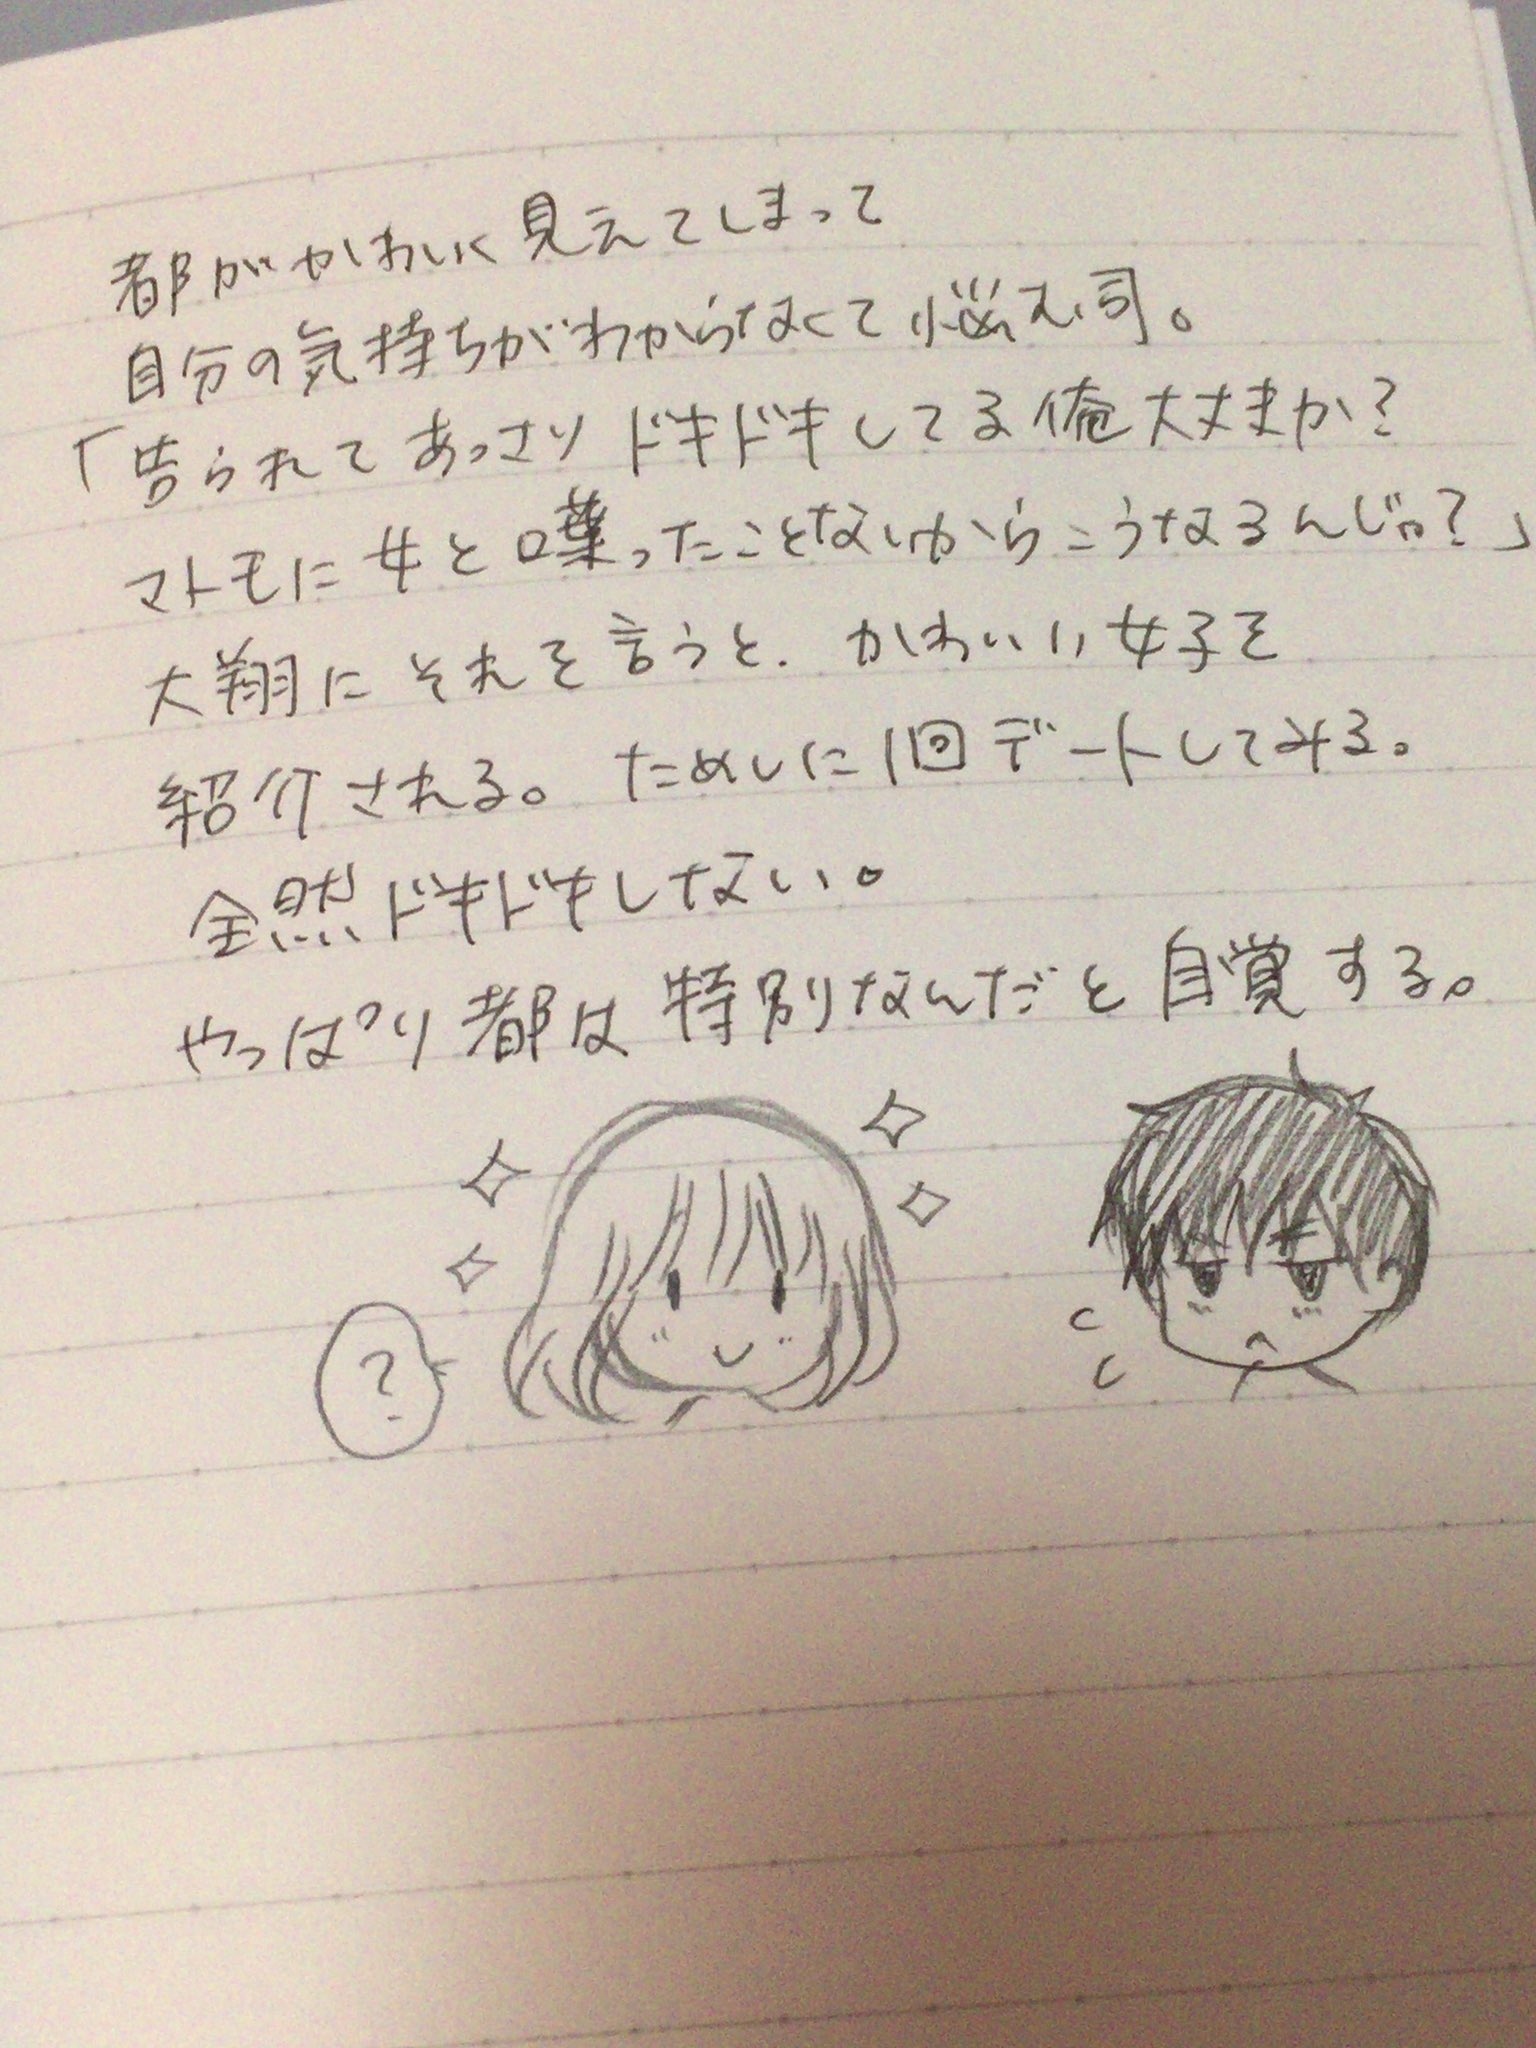 都がかわいく見えてしまって
自分の気持ちがわからなくて悩む司。
「告られてあっさりドキドキしてる俺大丈夫か?
マトモに女と喋ったことないからこうなるんじゃ?」
大翔にそれを言うと、かわいい女子を
紹介される。ためしに1回デートしてみる。
全然ドキドキしない。
やっぱり都は特別なんだと自覚する。
?